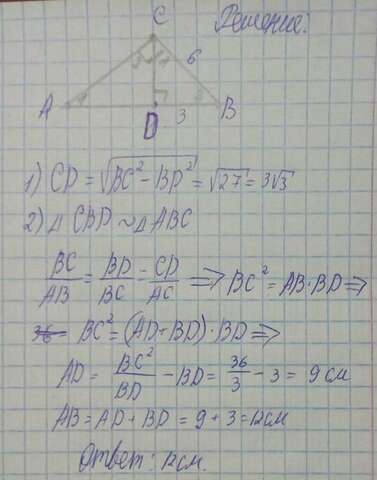 Решение:
C
6
A
B
D
3
1) CD = √BC² - BD² = √27 = 3√3
2) Δ CBD ~ Δ ABC
BC/AB = BD/BC - CD/AC => BC² = AB·BD =>
36 = BC² = (AD+BD)·BD =>
AD = BC²/BD - BD = 36/3 - 3 = 9 см
AB = AD + BD = 9 + 3 = 12 см
Ответ: 12 см.